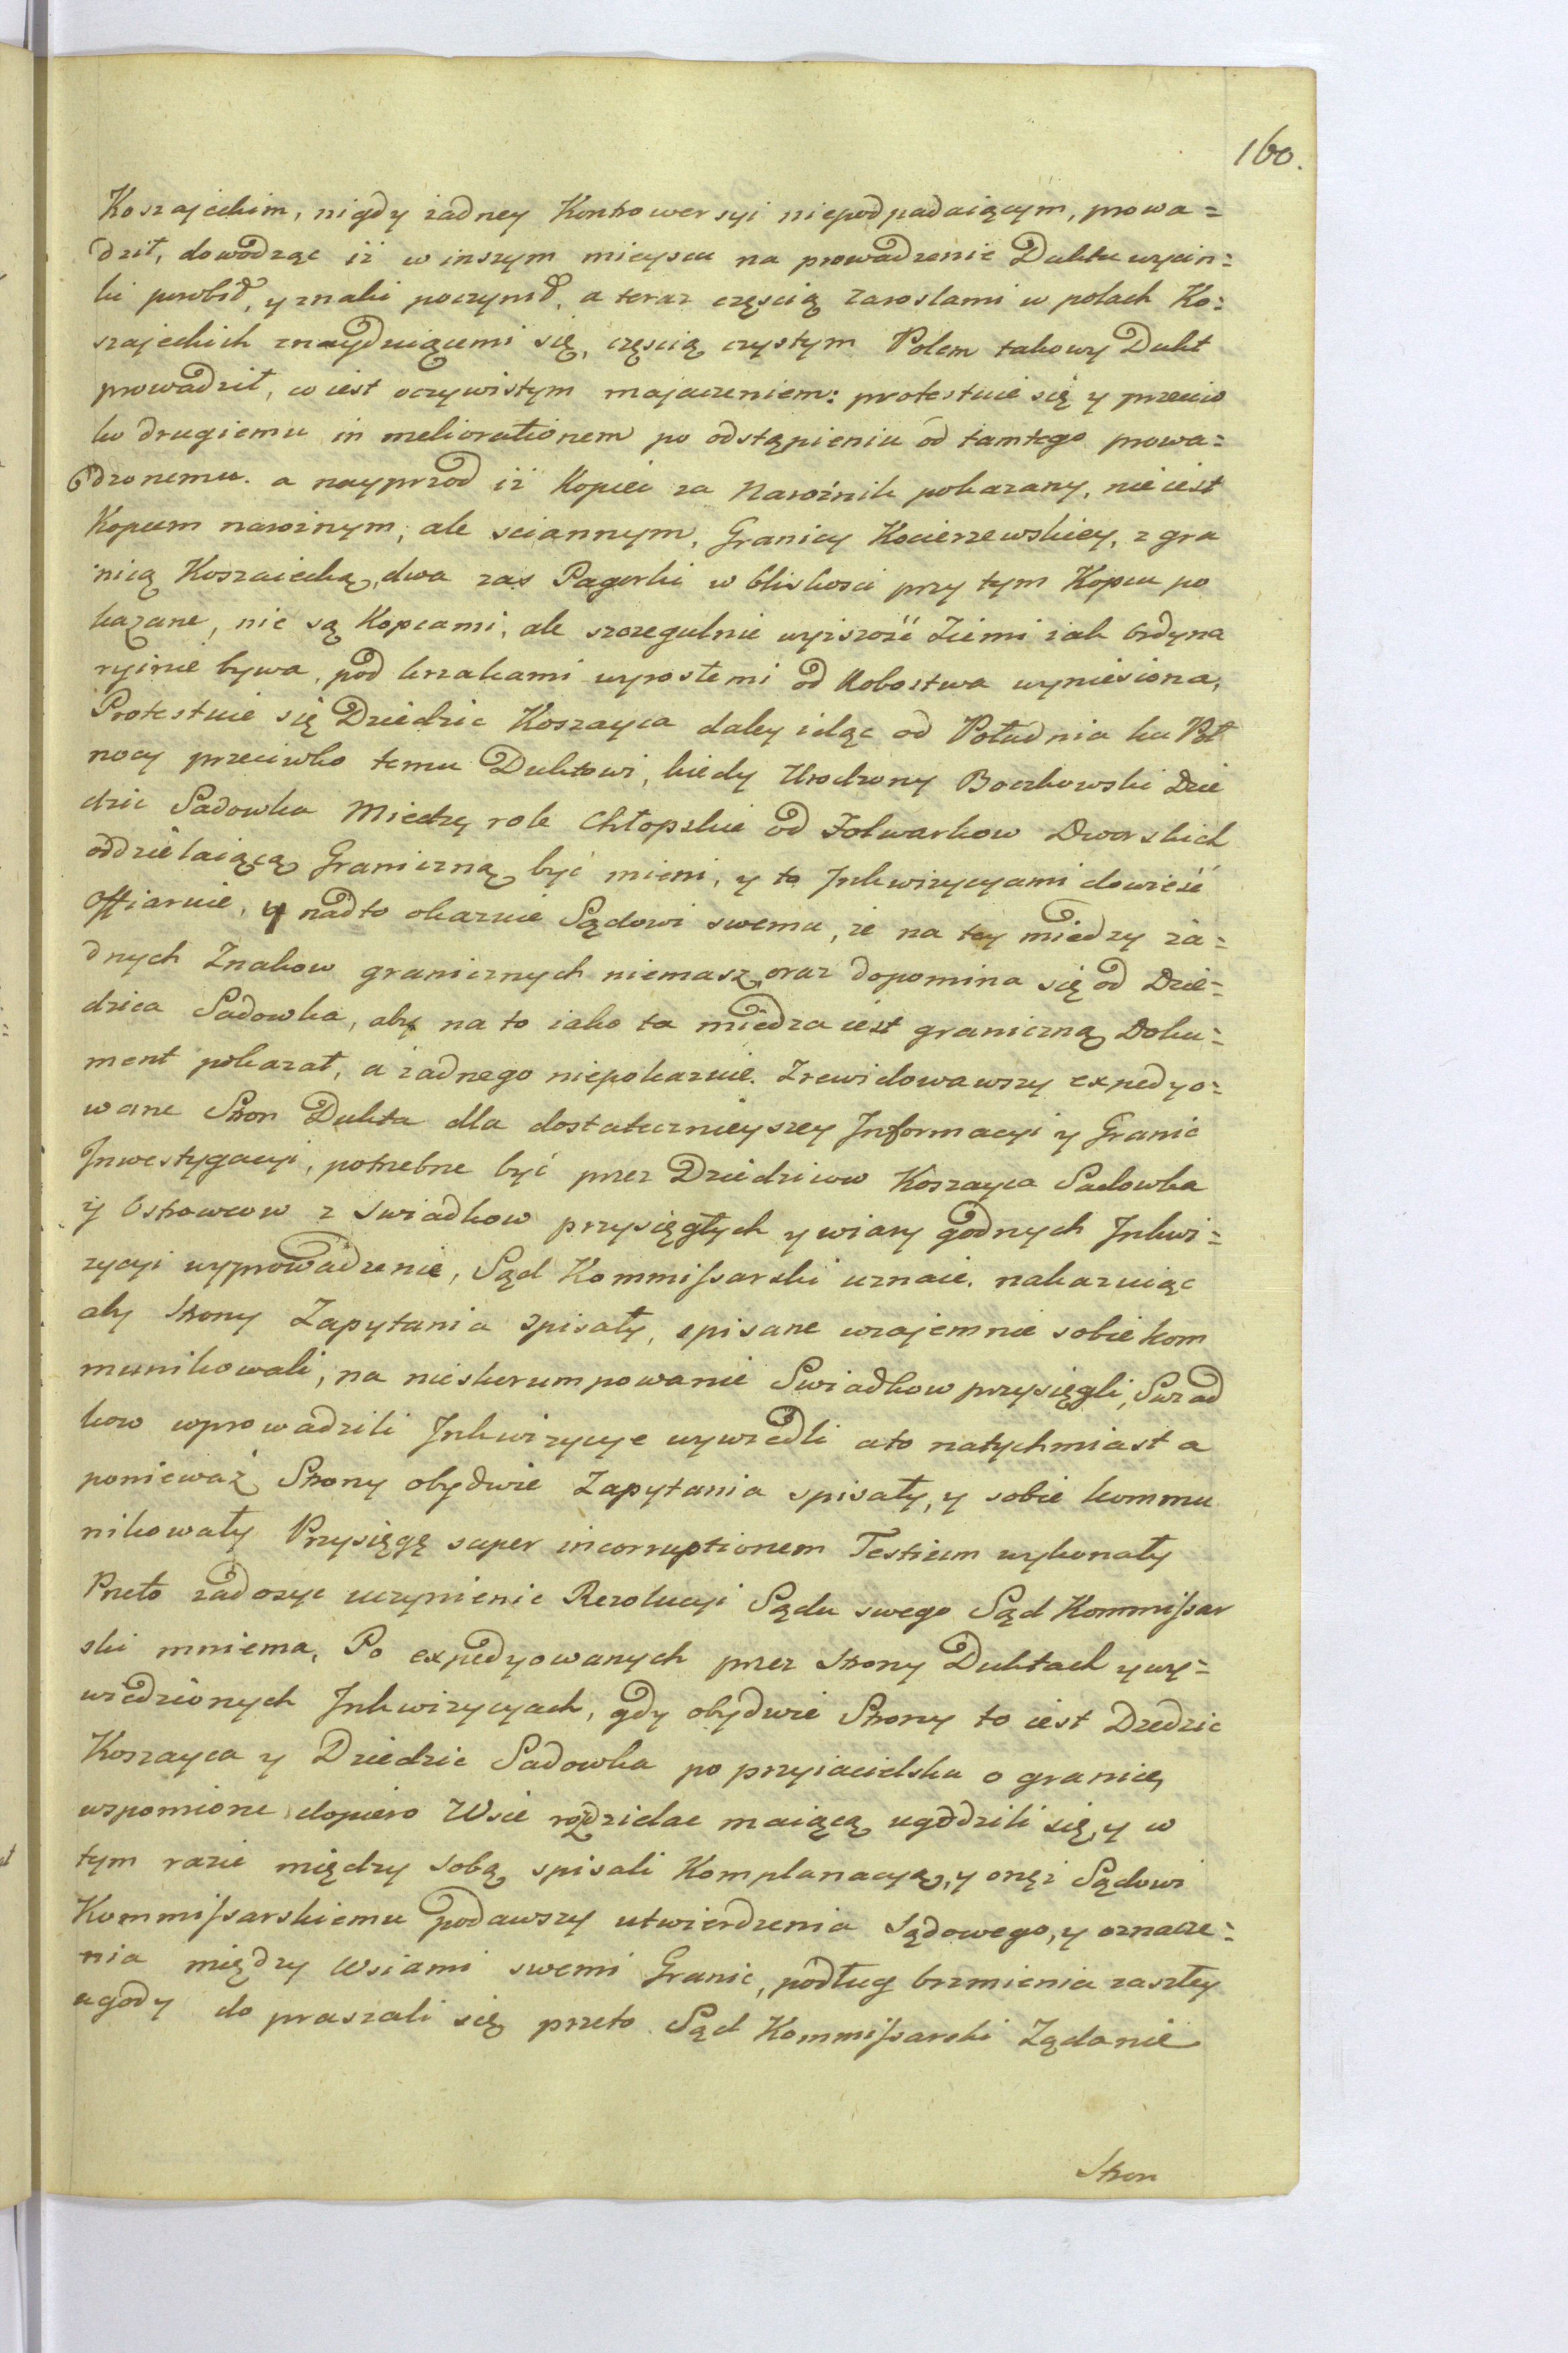 160.
Koszajeckim, nigdy żadney Kontrowersyi niepodpadaiącym, prowa=
dził, dowodząc iż w inszym mieyscu na prowadzenie Duktu wycin=
ki porobił, y znaki poczynił, a teraz częścią zaroslami w polach Ko=
szajeckich znayduiącemi się, częścią czystym Polem takowy Dukt
prowadził, co iest oczywistym majaczeniem: protestuie się y przeciw
ko drugiemu in meliorationem po odstąpieniu od tamtego prowa=
dzonemu. a nayprzod iż Kopiec za Narożnik pokazany, nie iest
Kopcem narożnym, ale sciannym, Granicy Kocierzewskiey, z gra
nicą Koszaiecką, dwa zas Pagorki w bliskosci przy tym Kopcu po
kazane, nie są Kopcami, ale szczegulnie wyższość Ziemi iak ordyna
ryinie bywa, pod krzakami wyrosłemi od Robostwa wyniesiona,
Protestuie się Dziedzic Koszayca daley idąc od Południa ku Puł
nocy przeciwko temu Duktowi, kiedy Urodzony Boczkowski Dzie
dzic Sadowka Miedzę role Chłopskie od Folwarkow Dworskich
oddzielaiącą Graniczną być mieni, y to Inkwizycyami dowieść
offiaruie, y nadto okazuie Sądowi swemu, że na tey miedzy ża=
dnych Znakow granicznych niemasz, oraz dopomina się od Dzie=
dzica Sadowka, aby na to iako ta miedza iest graniczną Doku=
ment pokazał, a żadnego niepokazuie. Zrewidowawszy expedyo=
wane Stron Dukta dla dostatecznieyszey Informacyi y Granic
Inwestygacyi, potrzebne być przez Dziedzicow Koszayca Sadowka
y Ostrowcow z swiadkow przysięgłych y wiary godnych Inkwi=
zycyi wyprowadzenie, Sąd Kommissarski uznaie. nakazuiąc
aby Strony Zapytania spisały, spisane wzajemnie sobie kom
munikowali, na nieskorumpowanie Swiadkow przysięgli, Swiad
kow wprowadzili Inkwizycye wywiedli ato natychmiast a
ponieważ Strony obydwie Zapytania spisały, y sobie kommu
nikowały Przysięgę super incorruptionem Testium wykonały
Przeto zadosyc uczynienie Rezolucyi Sądu swego Sąd Kommissar
ski mniema, Po expedyowanych przez Strony Duktach y wy=
wiedzionych Inkwizycyach, gdy obydwie Strony to iest Dziedzic
Koszayca y Dziedzic Sadowka po przyiacielsku o granicę
wspomione dopiero Wsie rozdzielac maiącą ugodzili się, y w
tym razie między sobą spisali Komplanacyą, y onęż Sądowi
Kommissarskiemu podawszy utwierdzenia Sądowego, y oznacze=
nia między Wsiami swemi Granic, podług brzmienia zaszłey
ugody do praszali się przeto Sąd Kommissarski Żądanie
Stron